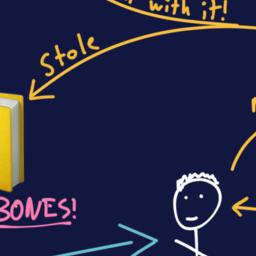 with it!
Stole
BONES!